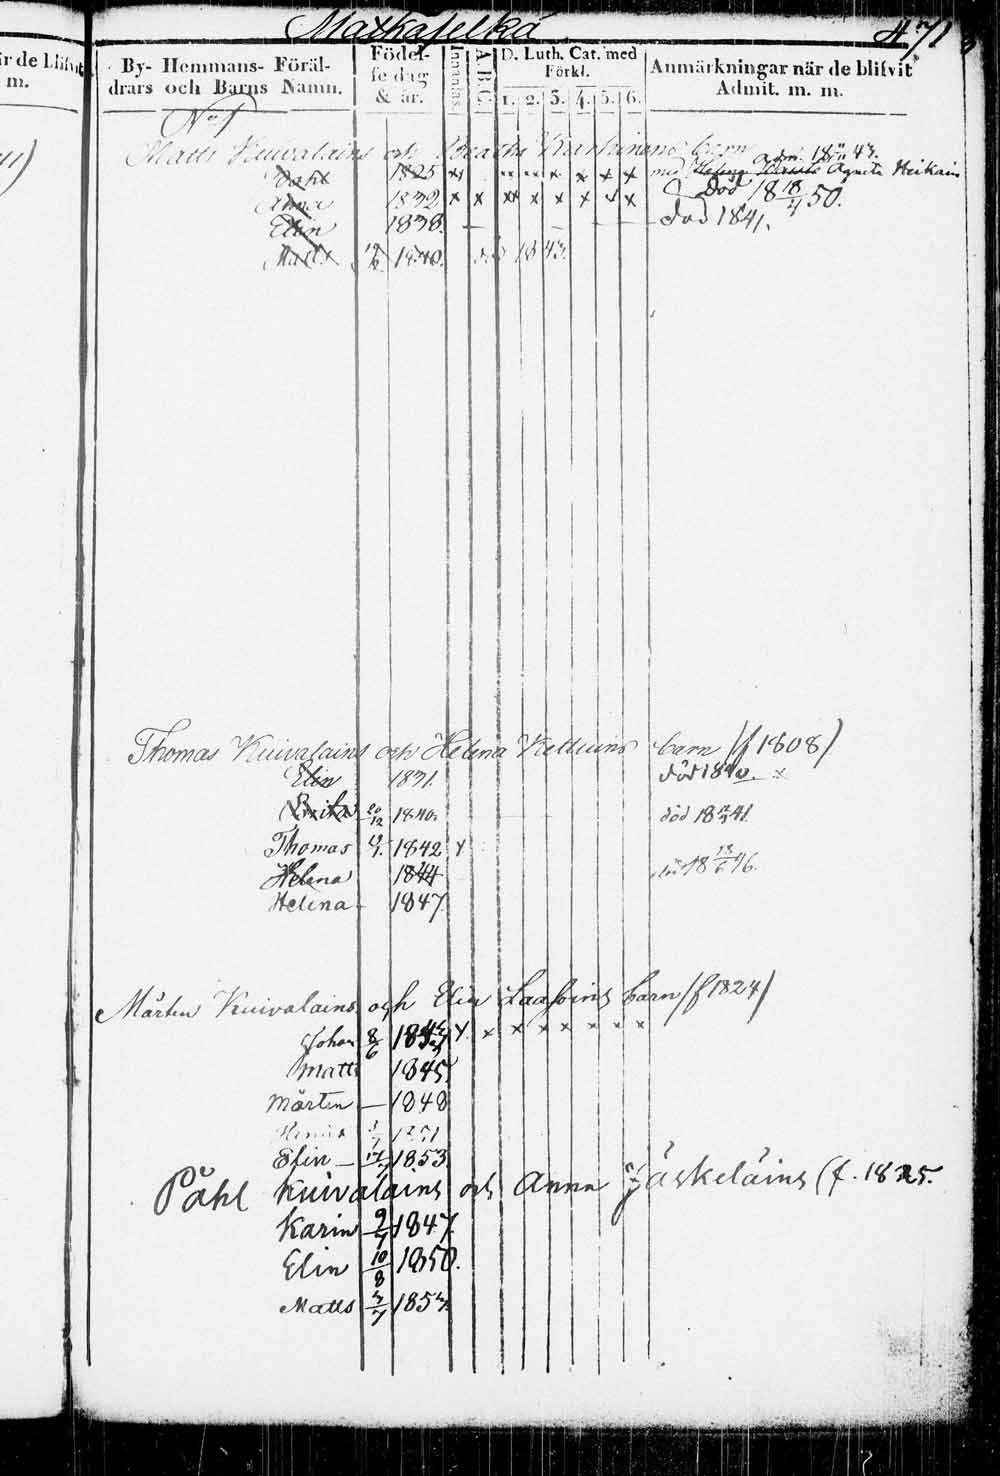 Matkaselkä 471
ir de blifvit
m.
By- Hemmans- Föräl-
drars och Barns Namn.
Födel-
se dag
& år.
Innanläs.
A B C.
D. Luth. Cat. med
Förkl.
1. 2. 3. 4. 5. 6.
Anmärkningar när de blifvit
Admit. m. m.
No 1
Matts Kuivalains och Beata Karhinens barn
Påhl 1825 x x x x x med Agneta Heikain
adm. 18 43.
Anna 1832 x x x x x x x x död 18 18/4 50.
Elin 1838. död 1841.
Matts 1840. död 1843.
Thomas Kuivalains och Helena Kettuins barn (f 1808)
Elin 1831. död 1840. x
Brita 20/12 1840. död 18 41.
Thomas 1842 x
Helena 1844 död 18 46.
Helena 1847.
Mårten Kuivalains och Elin Laasoins barn (f 1824)
Johan 8/6 x x x x x x x x
Matts 1845.
Mårten — 1848
Elin — 1853.
Påhl Kuivalains och Anna Jäskeläins (f. 1825.
Karin 9/7 1847.
Elin 10/8 1850.
Matts 3/7 1853.